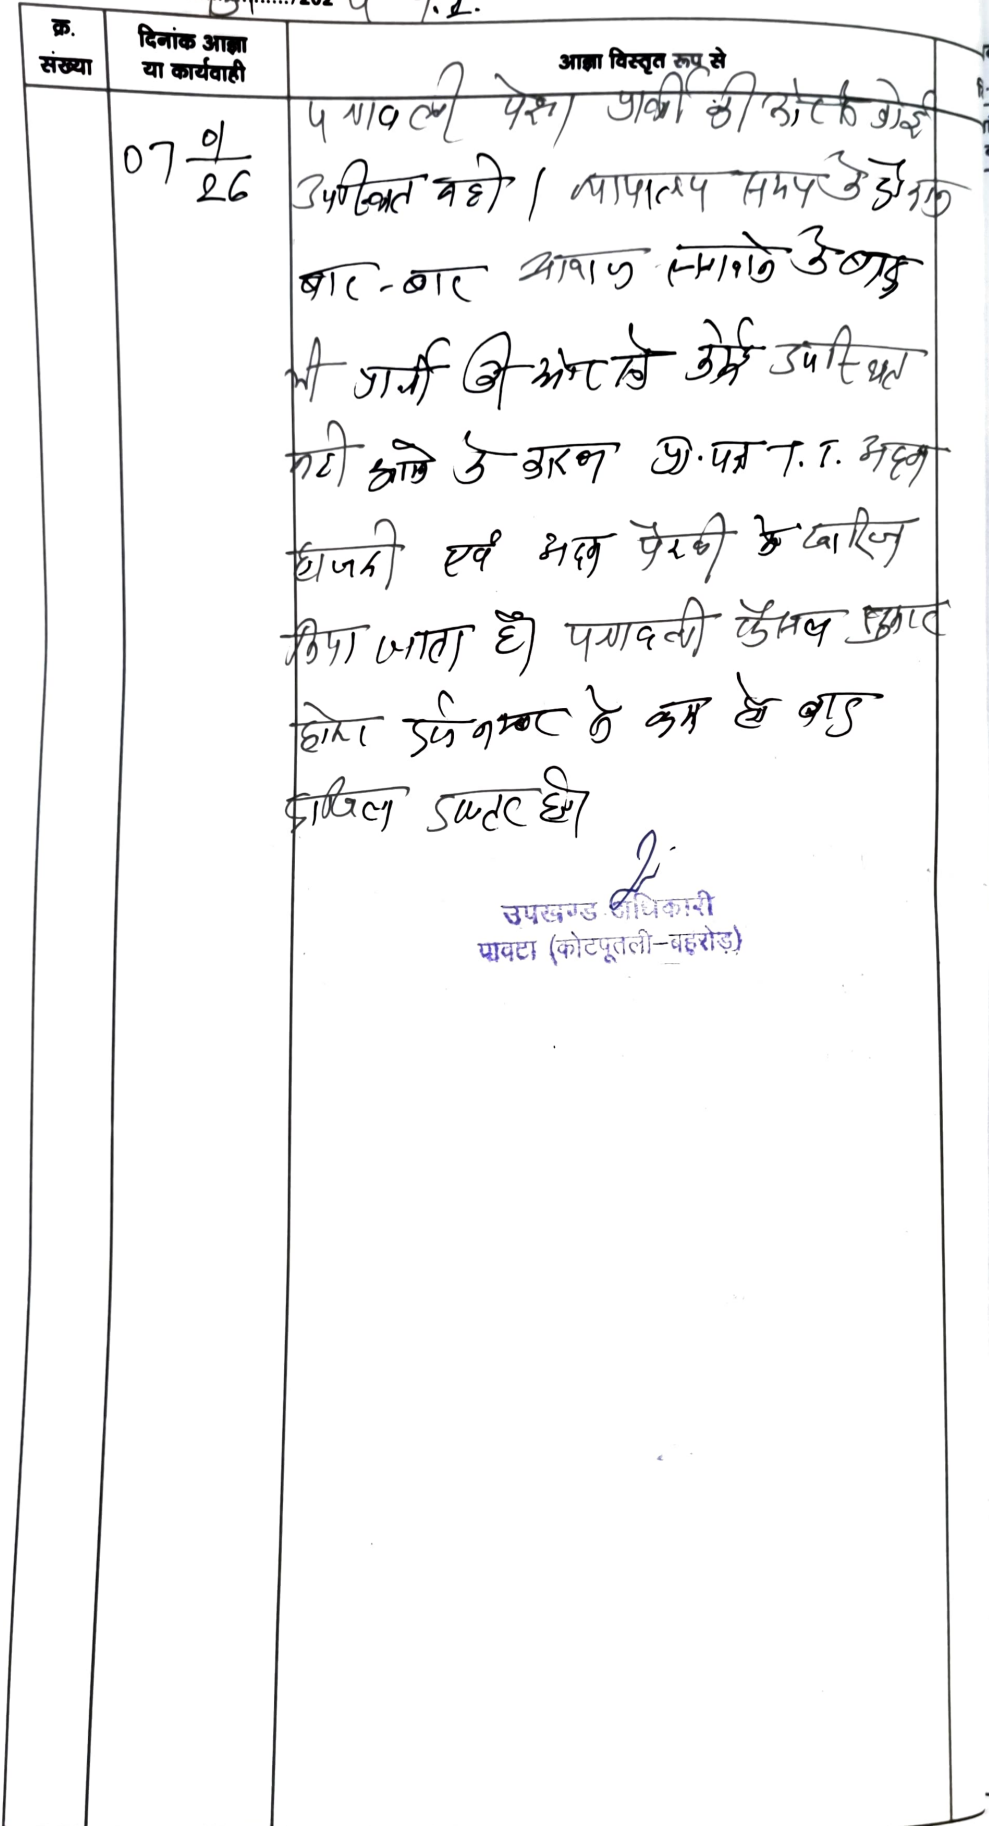 T.I.
क्र. संख्या
दिनांक आज्ञा या कार्यवाही
आज्ञा विस्तृत रूप से
07 01/26
पत्रावली पेश। प्रार्थी की ओर से कोई
उपस्थित नही। न्यायालय समय के दौरान
बार-बार आवाज लगवाने के बाद
भी प्रार्थी की ओर से कोई उपस्थित
नही आने के कारण प्रा.पत्र T.I. अदम
हाजरी एवं अदम पैरवी मे खारिज
किया जाता है। पत्रावली फैसल शुमार
होकर दर्ज नम्बर से कम हो बाद
दाखिल दफ्तर हो।
उपखण्ड अधिकारी
पावटा (कोटपूतली-बहरोड़)